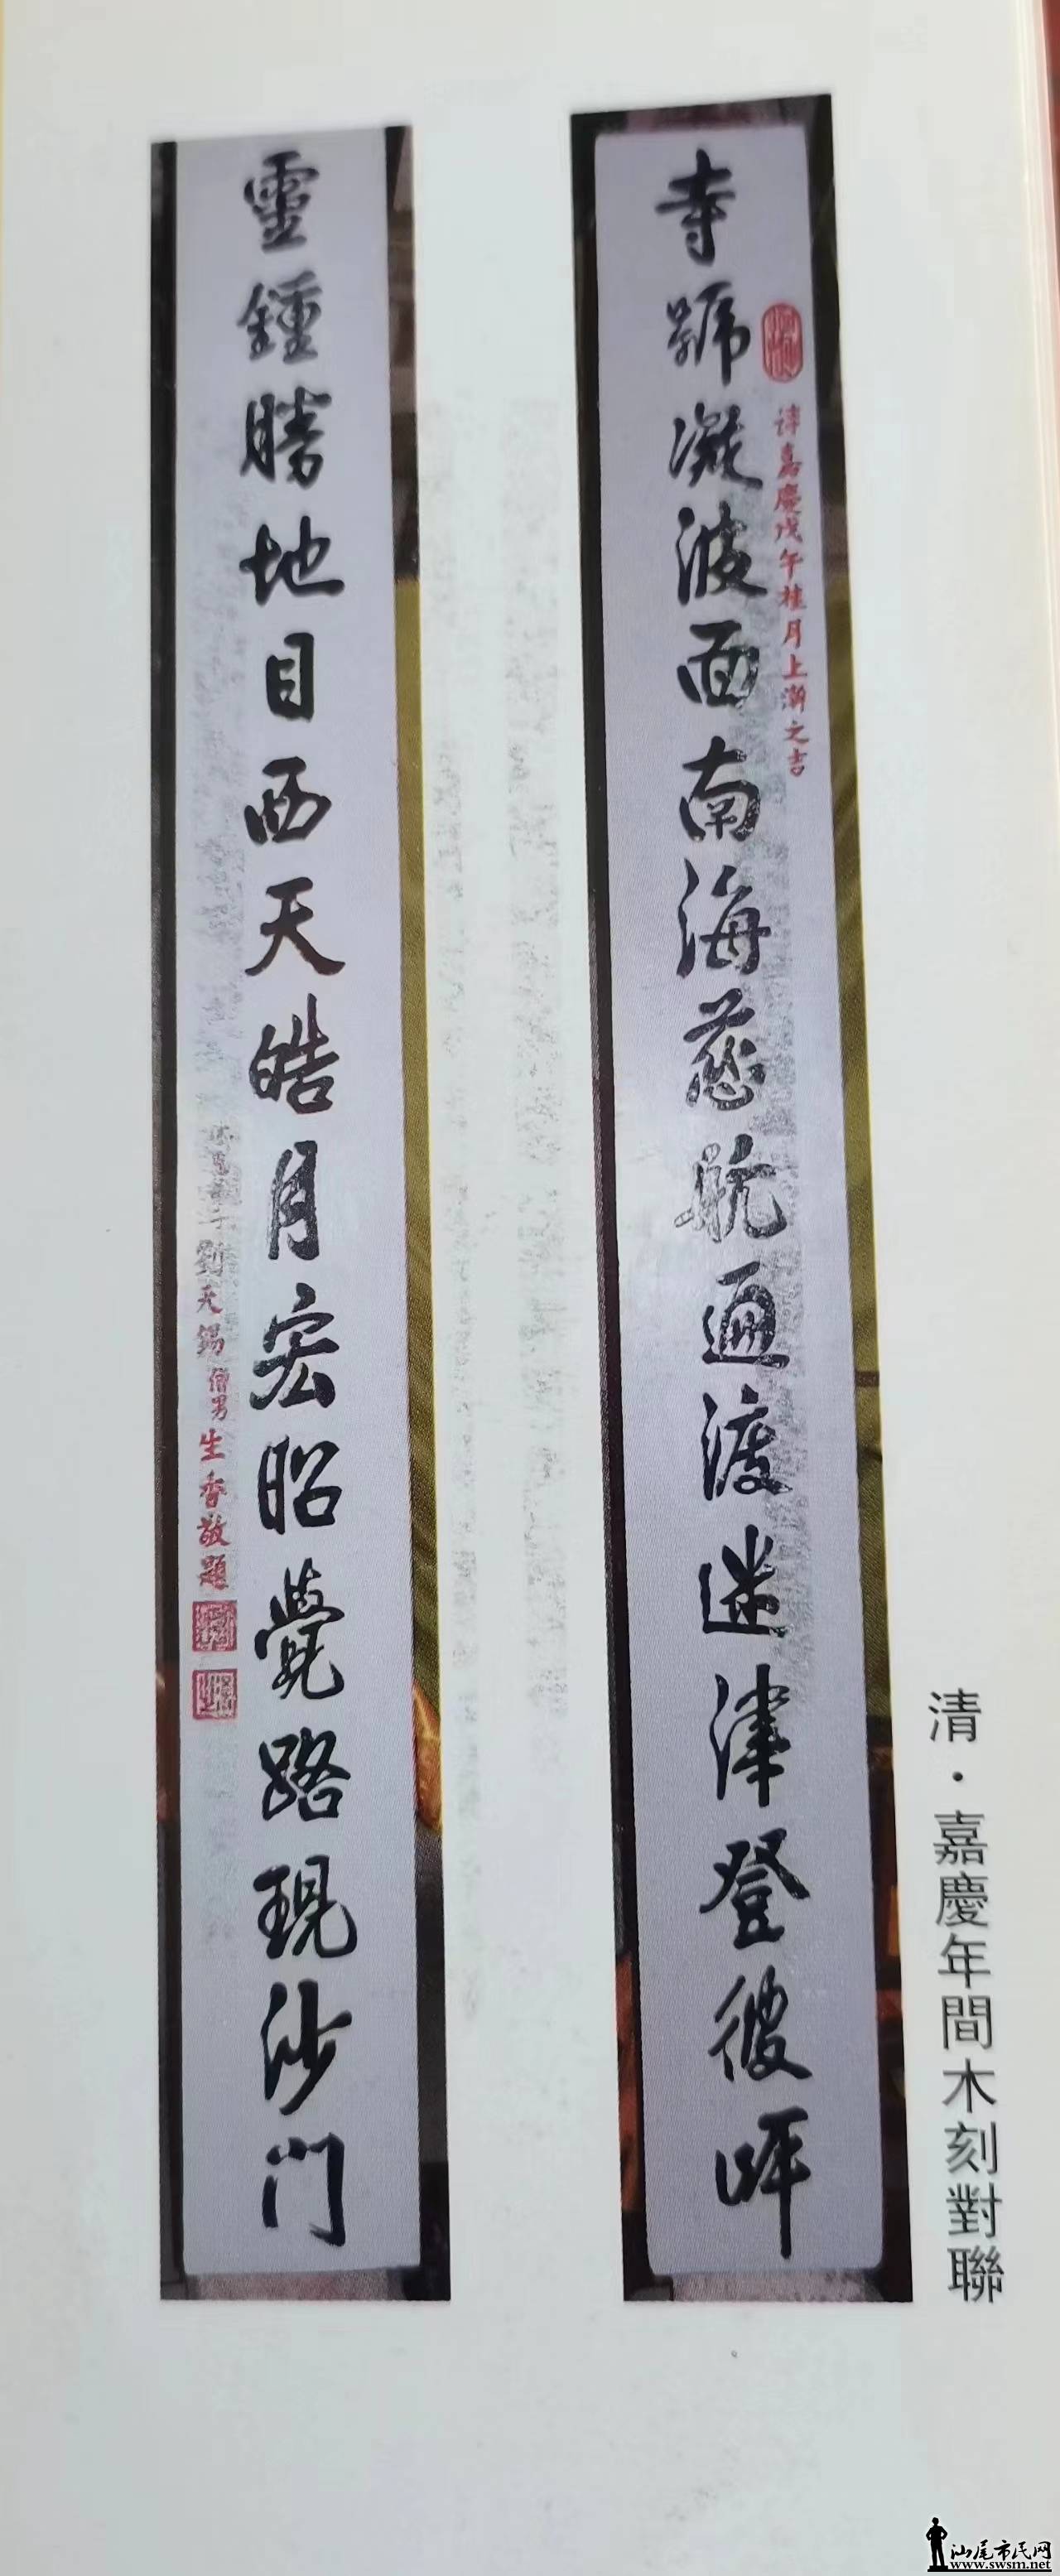 清·嘉慶年間木刻對聯
時嘉慶戊午桂月上澣之吉
寺號凝波面南海慈航迊渡迷津登彼岸
靈鍾勝地目西天皓月宏昭覺路現沙門
劉天錫偕男生香敬題
汕尾市民网
www.swsm.net